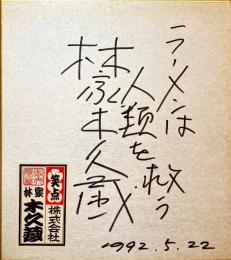 ラーメンは
人類を救う
林家木久蔵
笑点
株式会社
林家
木久蔵
1992.5.22